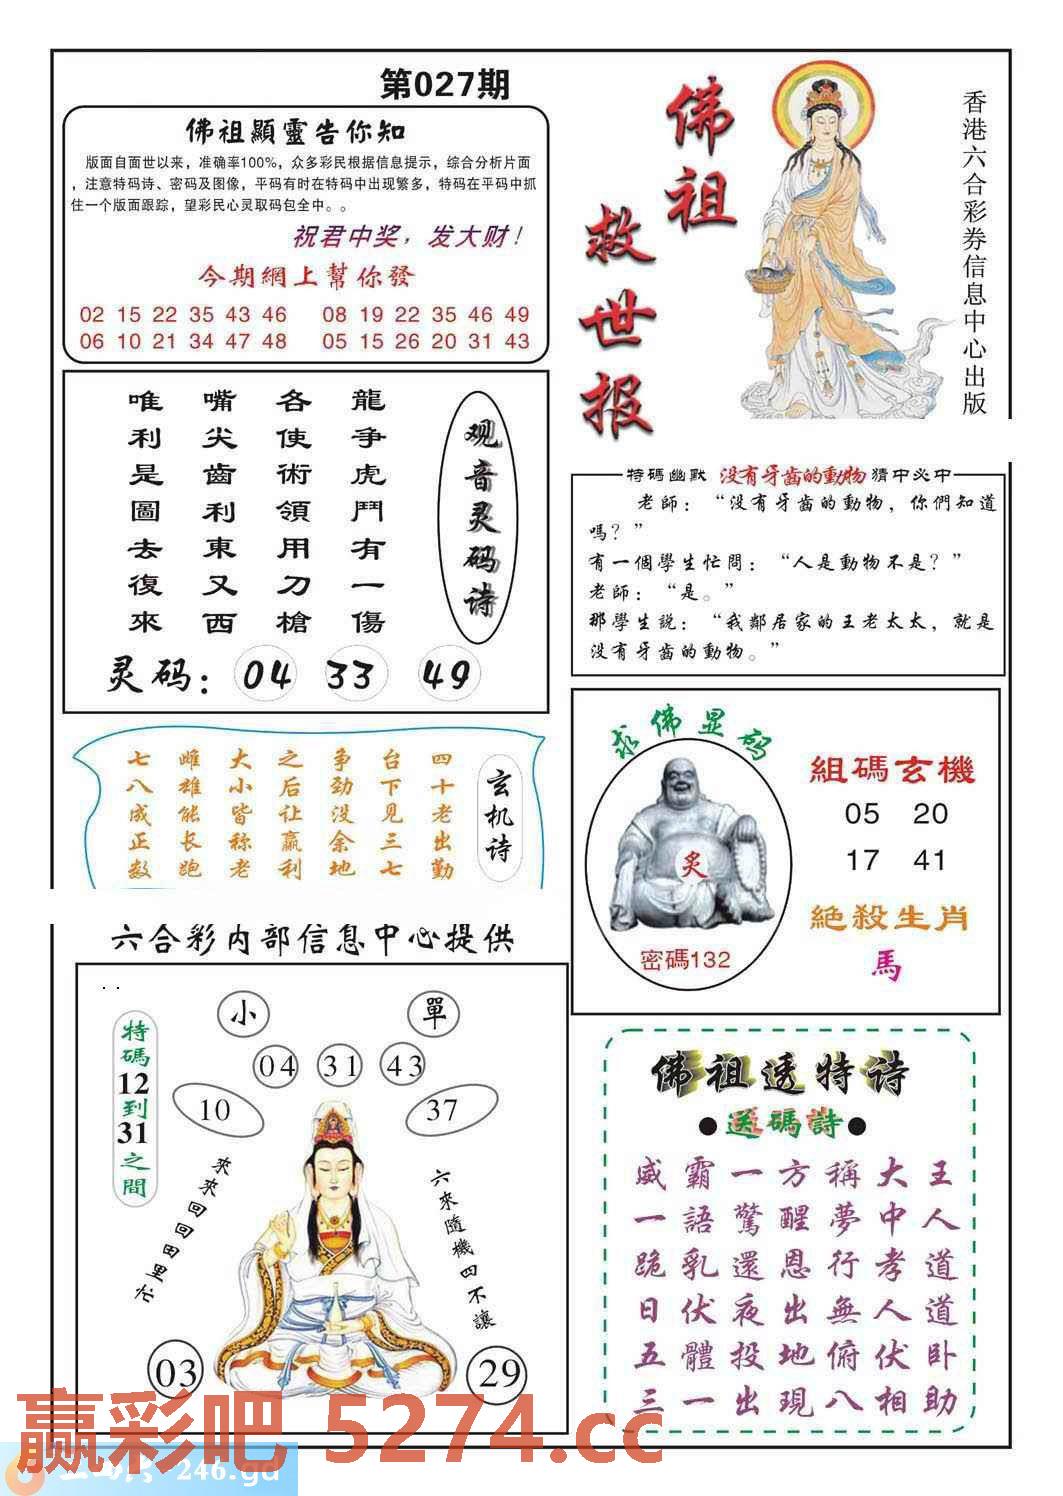 第027期
佛祖顯靈告你知
版面自面世以来，准确率100%，众多彩民根据信息提示，综合分析片面
，注意特码诗、密码及图像，平码有时在特码中出现繁多，特码在平码中抓
住一个版面跟踪，望彩民心灵取码包全中。。
祝君中奖，发大财！
今期網上幫你發
02 15 22 35 43 46 08 19 22 35 46 49
06 10 21 34 47 48 05 15 26 20 31 43
佛祖
救世报
香港六合彩券信息中心出版
观音灵码诗
龍争虎鬥有一傷
各使術領用刀槍
嘴尖齒利東又西
唯利是圖去復來
灵码：04 33 49
特碼幽默 没有牙齒的動物 猜中必中
老師：“没有牙齒的動物，你們知道
嗎？”
有一個學生忙問：“人是動物不是？”
老師：“是。”
那學生説：“我鄰居家的王老太太，就是
没有牙齒的動物。”
玄机诗
四十老出勤
台下见三七
争劲没余地
之后让赢利
大小皆称老
雌雄能长跑
七八成正数
求佛显码
炙
密碼132
組碼玄機
05 20
17 41
絕殺生肖
馬
六合彩内部信息中心提供
特碼12到31之間
小
單
04 31 43
10
37
來來回回田里忙
六來隨機四不讓
03
29
佛祖透特诗
●送碼詩●
威霸一方稱大王
一語驚醒夢中人
跪乳還恩行孝道
日伏夜出無人道
五體投地俯伏卧
三一出現八相助
赢彩吧 5274.cc
246.gd